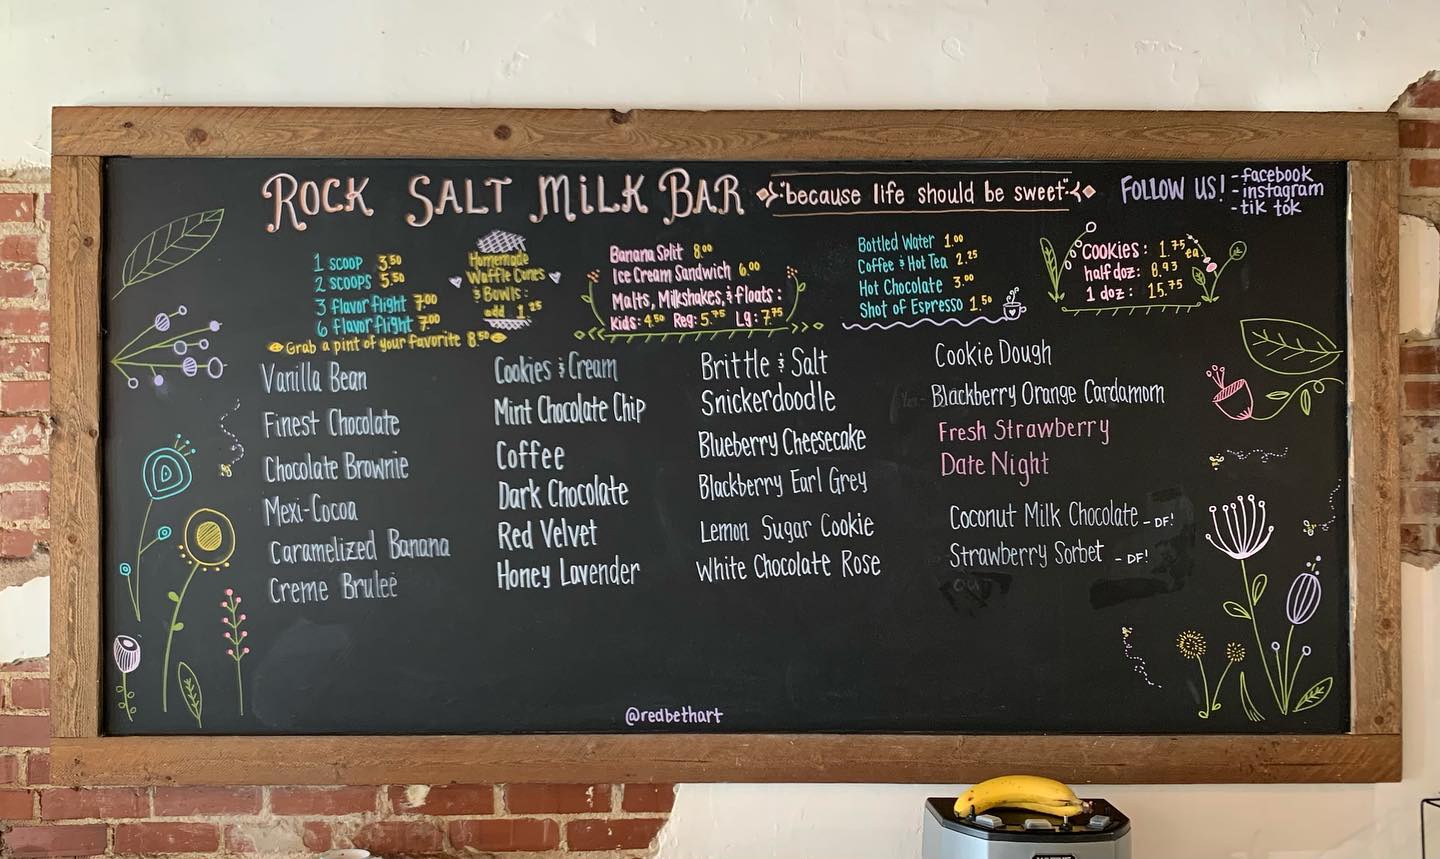 ROCK SALT MiLK BAR "because life should be sweet"
FOLLOW US! - facebook
- instagram
- tik tok
1 scoop 3.50
2 scoops 5.50
3 flavor flight 7.00
6 flavor flight 7.00
Grab a pint of your favorite 8.50
Homemade
Waffle Cones
& Bowls:
add 1.25
Banana Split 8.00
Ice Cream Sandwich 6.00
Malts, Milkshakes, & floats:
Kids: 4.50 Reg: 5.75 Lg: 7.75
Bottled Water 1.00
Coffee & Hot Tea 2.25
Hot Chocolate 3.00
Shot of Espresso 1.50
Cookies: 1.75 ea
half doz: 8.93
1 doz: 15.75
Vanilla Bean
Finest Chocolate
Chocolate Brownie
Mexi-Cocoa
Caramelized Banana
Creme Bruleé
Cookies & Cream
Mint Chocolate Chip
Coffee
Dark Chocolate
Red Velvet
Honey Lavender
Brittle & Salt
Snickerdoodle
Blueberry Cheesecake
Blackberry Earl Grey
Lemon Sugar Cookie
White Chocolate Rose
Cookie Dough
Blackberry Orange Cardamom
Fresh Strawberry
Date Night
Coconut Milk Chocolate - DF!
Strawberry Sorbet - DF!
@redbethart